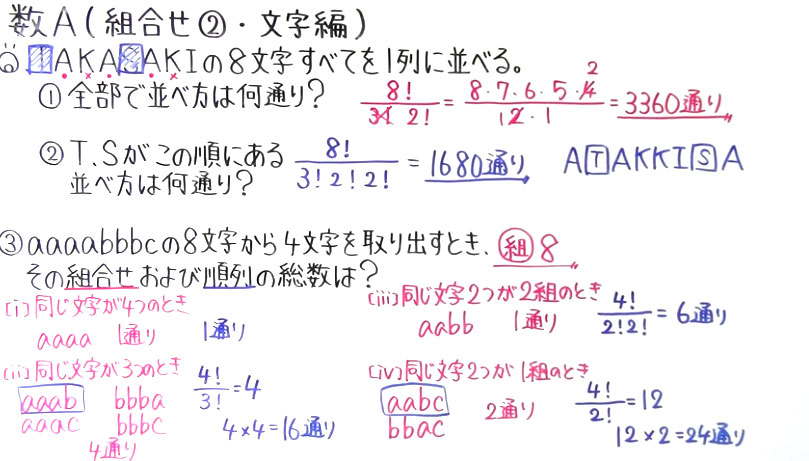 数A(組合せ②・文字編)
TAKASAKIの8文字すべてを1列に並べる。
①全部で並べ方は何通り?
8!/3! 2! = 8・7・6・5・4 2/2・1 = 3360通り
②T、Sがこの順にある
並べ方は何通り?
8!/3!2!2! = 1680通り ATAKKISA
③aaaabbbcの8文字から4文字を取り出すとき、
その組合せおよび順列の総数は?
組 8
(i)同じ文字が4つのとき
aaaa 1通り 1通り
(ii)同じ文字が3つのとき
aaab bbba
aaac bbbc
4通り
4!/3! = 4
4×4=16通り
(iii)同じ文字2つが2組のとき
aabb 1通り
4!/2!2! = 6通り
(iv)同じ文字2つが1組のとき
aabc
bbac
2通り
4!/2! = 12
12×2=24通り